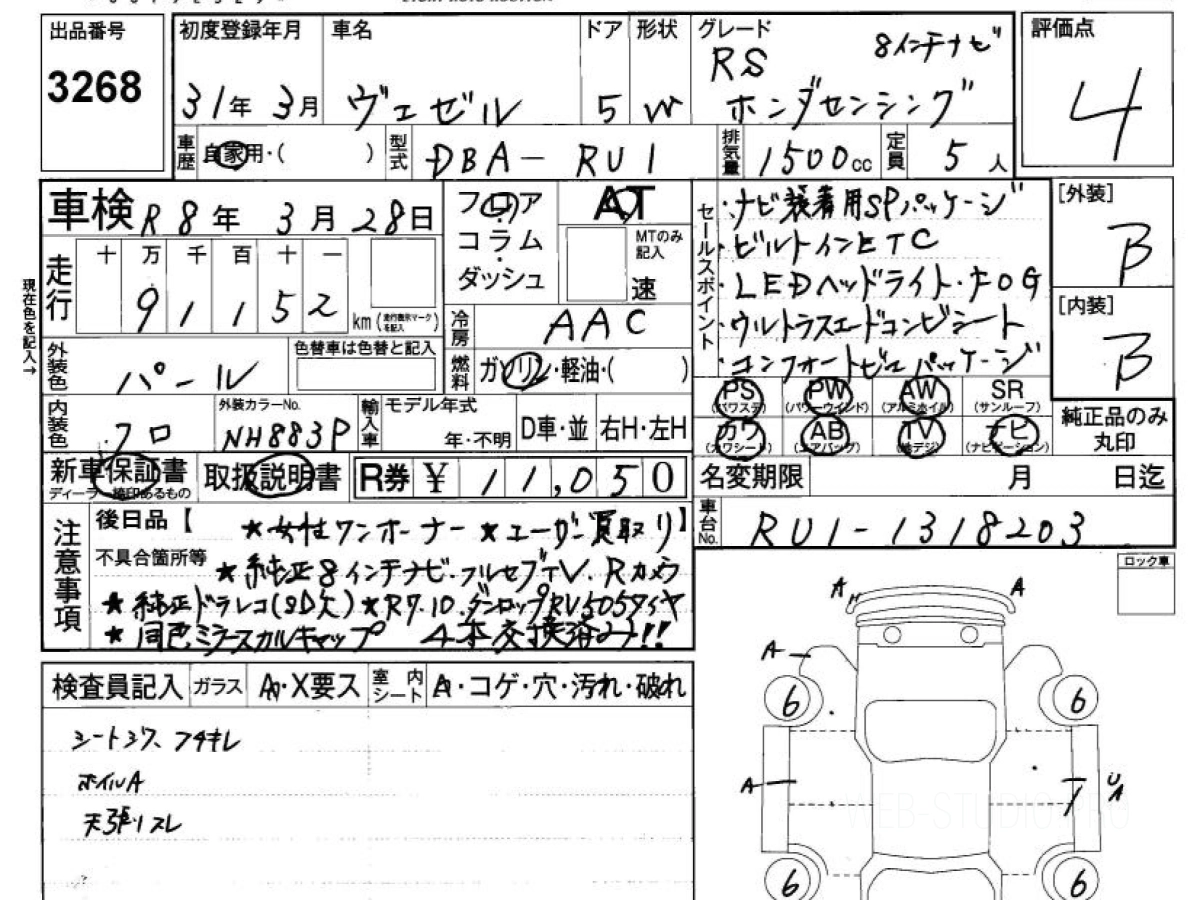 出品番号
3268
初度登録年月
31年 3月
車名
ヴェゼル
ドア
5
形状
W
グレード
RS 8インチナビ
ホンダセンシング
評価点
4
車歴
自家用・( )
型式
DBA- RU1
排気量
1500cc
定員
5人
車検
R8年 3月 28日
フロア
コラム
ダッシュ
AT
MTのみ記入
速
走行
十 万 千 百 十 一
9 1 1 5 2
km (走行表示マークを記入)
現在色を記入→
冷房
AAC
燃料
ガソリン・軽油・( )
セールスポイント
・ナビ装着用SPパッケージ
・ビルトインETC
・LEDヘッドライト・FOG
・ウルトラスエードコンビシート
・コンフォートビューパッケージ
[外装]
B
[内装]
B
外装色
パール
色替車は色替と記入
内装色
クロ
外装カラーNo.
NH883P
輸入車
モデル年式
年・不明
D車・並
右H・左H
PS
(パワステ)
PW
(パワーウインド)
AW
(アルミホイル)
SR
(サンルーフ)
カワ
(カワシート)
AB
(エアバッグ)
TV
(地デジ)
ナビ
(ナビゲーション)
純正品のみ
丸印
新車保証書
ディーラー捺印あるもの
取扱説明書
R券 ¥ 11,050
名変期限
月 日迄
車台No.
RU1-1318203
注意事項
後日品【 】
★女性ワンオーナー ★ユーザー買取り
不具合箇所等
★純正8インチナビ・フルセグTV・Rカメラ
★純正ドラレコ(SD欠) ★R7.10.ダンロップRV505タイヤ
★同色ミラースカルキャップ 4本交換済み!!
ロック車
検査員記入
ガラス
A・X要ス
室内シート
A・コゲ・穴・汚れ・破れ
シートシワ、フチキレ
ホイルA
天張リスレ
A
A
A
6
6
A
U
A
6
6
WEB-STUDIO.PRO